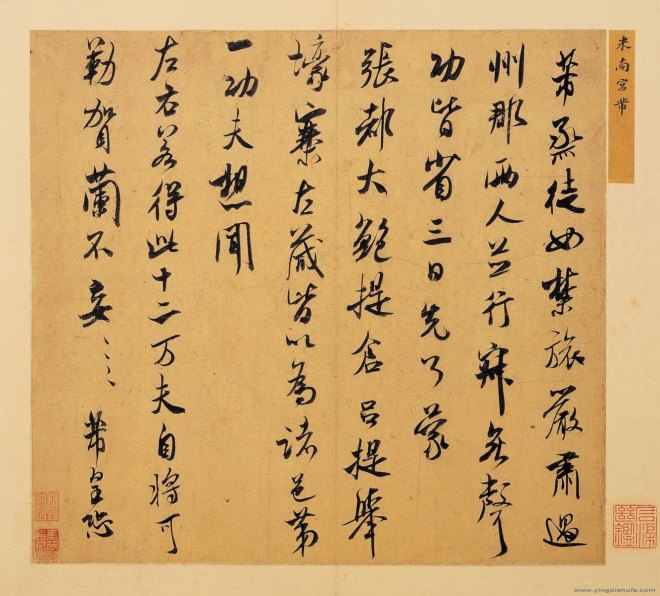 米南宮芾
芾烝徒如禁旅嚴肅過
州郡兩人並行寂無聲
功皆省三日先了蒙
張都大鮑提倉呂提舉
壕寨左藏皆以為諸邑第
一功夫想聞
左右若得此十二万夫自將可
勒賀蘭不妄〻〻 芾皇恐
www.yingbishufa.com